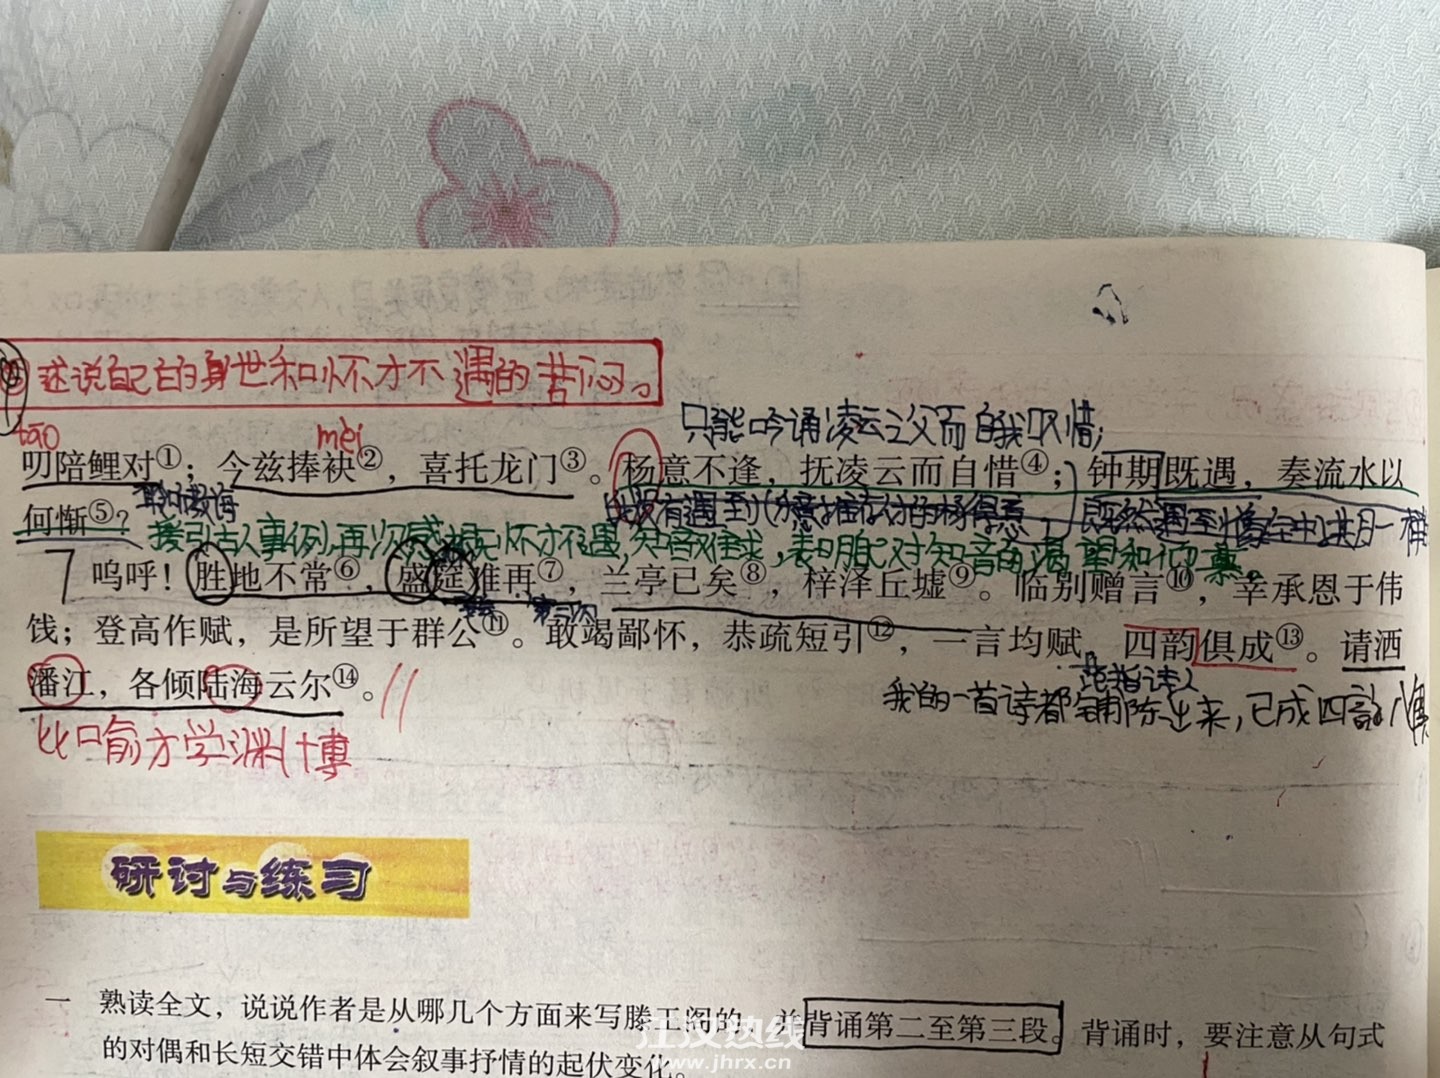 四 述说自己的身世和怀才不遇的苦闷。
tāo mèi
只能吟诵凌云之父而自我叹惜;
叨陪鲤对①；今兹捧袂②，喜托龙门③。杨意不逢，抚凌云而自惜④；钟期既遇，奏流水以
聆听教诲
没有遇到 推荐 的杨得意
既然遇到 钟 一样
何惭⑤？
援引古人事例,再次感 怀才不遇,知音难求,表明 对知音的渴望和仰慕。
呜呼！胜地不常⑥，盛筵难再⑦，兰亭已矣⑧，梓泽丘墟⑨。临别赠言⑩，幸承恩于伟
第二次
饯；登高作赋，是所望于群公⑪。敢竭鄙怀，恭疏短引⑫，一言均赋，四韵俱成⑬。请洒
潘江，各倾陆海云尔⑭。
我的一首诗都铺陈出来,已成四韵八
比喻才学渊博
研讨与练习
一 熟读全文，说说作者是从哪几个方面来写滕王阁的，并背诵第二至第三段。背诵时，要注意从句式
的对偶和长短交错中体会叙事抒情的起伏变化。
江汉热线
www.jhrx.cn